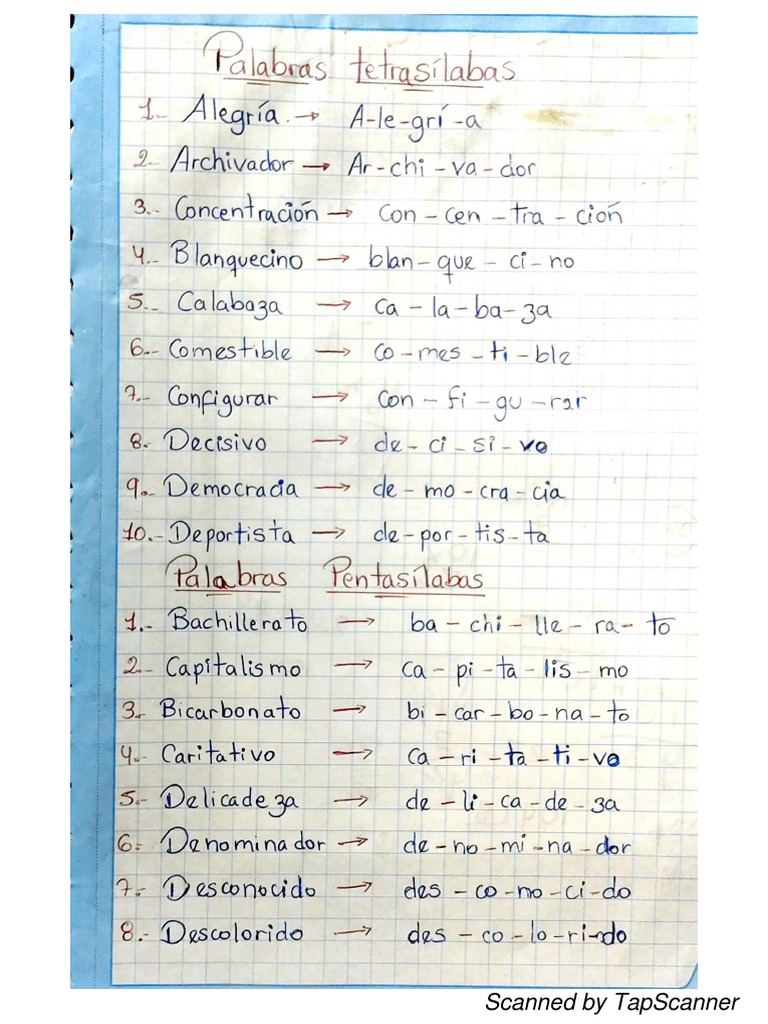 Palabras tetrasílabas
1.- Alegría → A-le-grí-a
2.- Archivador → Ar-chi-va-dor
3.- Concentración → con-cen-tra-ción
4.- Blanquecino → blan-que-ci-no
5.- Calabaza → ca-la-ba-za
6.- Comestible → co-mes-ti-ble
7.- Configurar → con-fi-gu-rar
8.- Decisivo → de-ci-si-vo
9.- Democracia → de-mo-cra-cia
10.- Deportista → de-por-tis-ta
Palabras Pentasílabas
1.- Bachillerato → ba-chi-lle-ra-to
2.- Capitalismo → ca-pi-ta-lis-mo
3.- Bicarbonato → bi-car-bo-na-to
4.- Caritativo → ca-ri-ta-ti-vo
5.- Delicadeza → de-li-ca-de-za
6.- Denominador → de-no-mi-na-dor
7.- Desconocido → des-co-no-ci-do
8.- Descolorido → des-co-lo-ri-do
Scanned by TapScanner